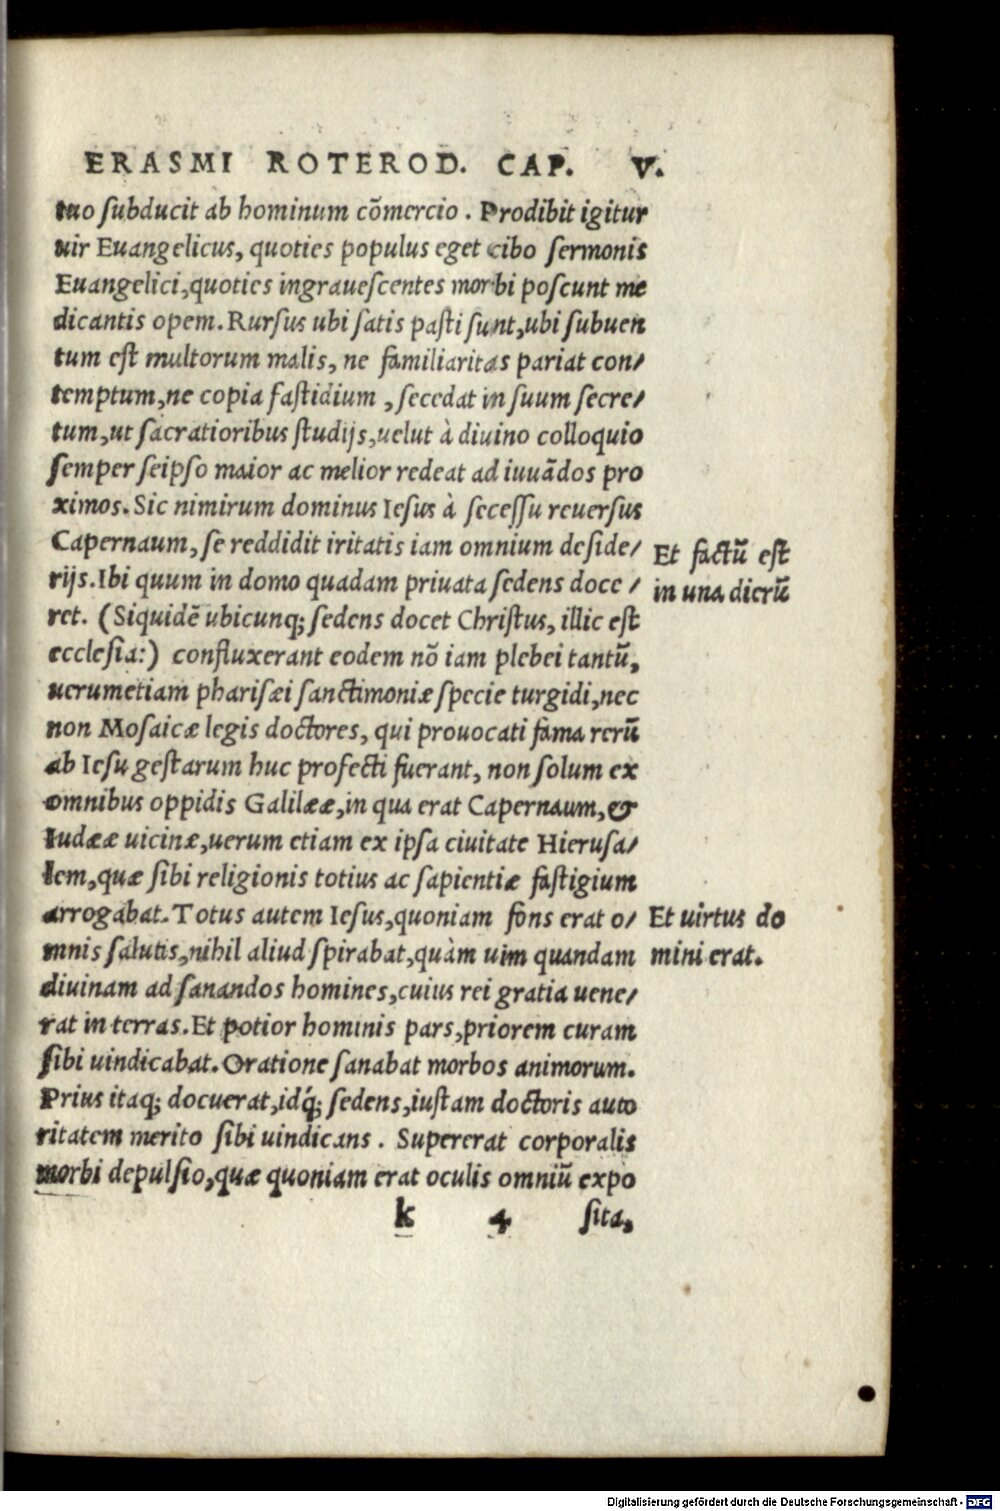 ERASMI ROTEROD. CAP. V.
tuo subducit ab hominum cõmercio. Prodibit igitur
uir Euangelicus, quoties populus eget cibo sermonis
Euangelici,quoties ingrauescentes morbi poscunt me
dicantis opem. Rursus ubi satis pasti sunt,ubi subuen
tum est multorum malis, ne familiaritas pariat con/
temptum,ne copia fastidium , secedat in suum secre/
tum,ut sacratioribus studijs,uelut à diuino colloquio
semper seipso maior ac melior redeat ad iuuãdos pro
ximos. Sic nimirum dominus Iesus à secessu reuersus
Capernaum, se reddidit iritatis iam omnium deside/
rijs. Ibi quum in domo quadam priuata sedens doce /
ret. (Siquidẽ ubicunq; sedens docet Christus, illic est
ecclesia:) confluxerant eodem nõ iam plebei tantũ,
uerumetiam pharisæi sanctimoniæ specie turgidi,nec
non Mosaicæ legis doctores, qui prouocati fama rerũ
ab Iesu gestarum huc profecti fuerant, non solum ex
omnibus oppidis Galilææ,in qua erat Capernaum,&
Iudææ uicinæ,uerum etiam ex ipsa ciuitate Hierusa/
lem,quæ sibi religionis totius ac sapientiæ fastigium
arrogabat. Totus autem Iesus,quoniam fons erat o/
mnis salutis,nihil aliud spirabat,quàm uim quandam
diuinam ad sanandos homines,cuius rei gratia uene/
rat in terras. Et potior hominis pars,priorem curam
sibi uindicabat. Oratione sanabat morbos animorum.
Prius itaq; docuerat,idq́; sedens,iustam doctoris auto
ritatem merito sibi uindicans . Supererat corporalis
morbi depulsio,quæ quoniam erat oculis omniũ expo
k 4 sita,
Et factũ est
in una dierũ
Et uirtus do
mini erat.
Digitalisierung gefördert durch die Deutsche Forschungsgemeinschaft - DFG